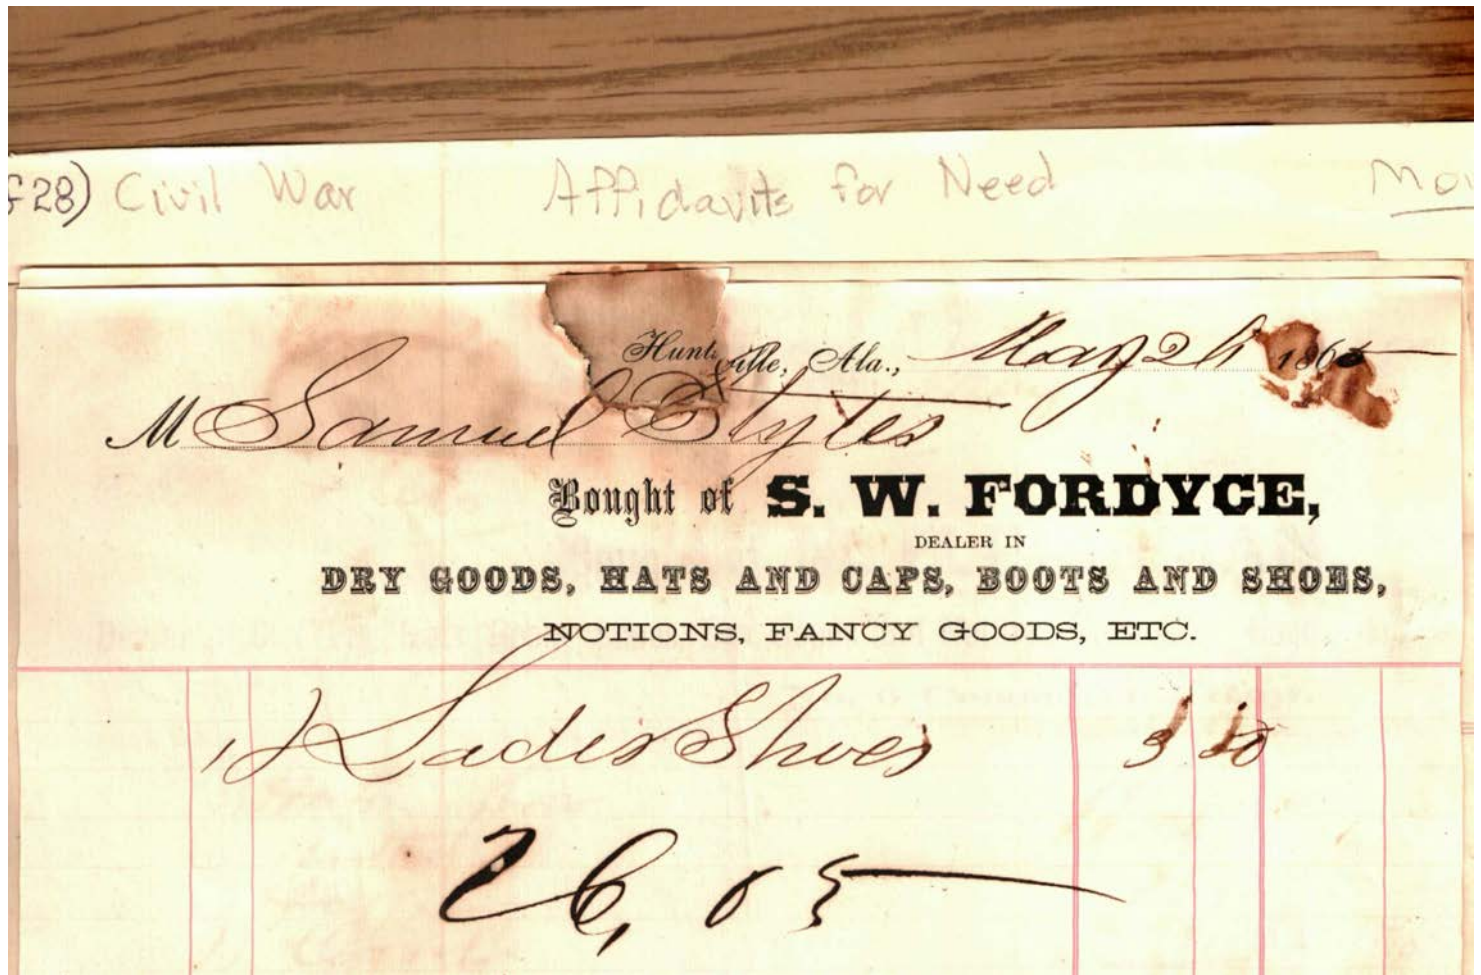 f28) Civil War Affidavits for Need
Huntsville, Ala., May 26 1865
M Samuel
Bought of S. W. FORDYCE,
DEALER IN
DRY GOODS, HATS AND CAPS, BOOTS AND SHOES,
NOTIONS, FANCY GOODS, ETC.
1 Ladies Shoes 3 50